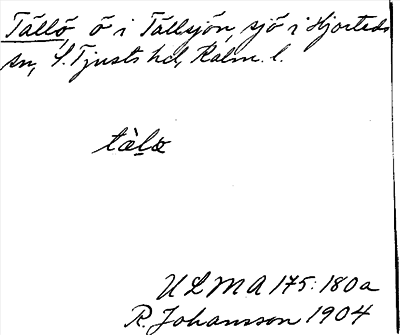 Tällö, ö i Tällsjön, sjö i Hjorteds
sn, S. Tjusts hd, Kalm. l.
tàlœ
ULMA 175:180a
R. Johansson 1904